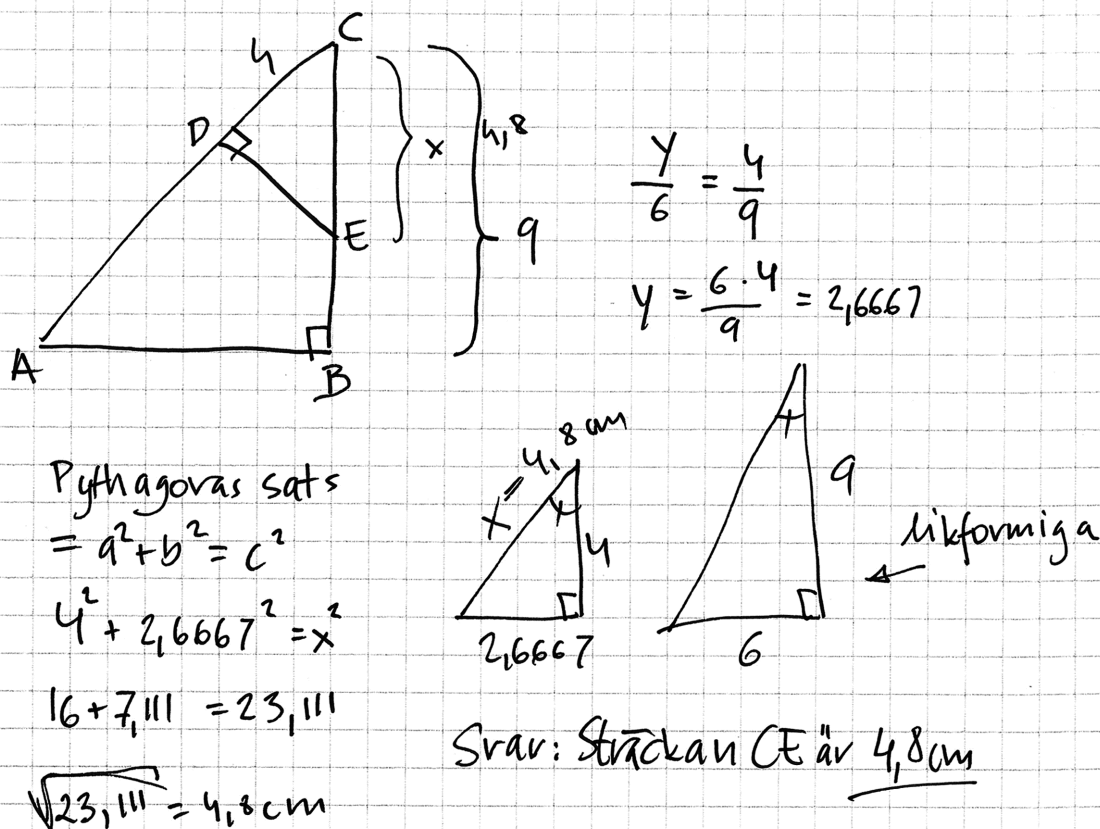 C
4
D
x
4,8
9
E
A
B
y/6 = 4/9
y = 6·4/9 = 2,6667
Pythagoras sats
= a²+b² = c²
4² + 2,6667² = x²
16+7,111 = 23,111
√23,111 = 4,8cm
x = 4,8 cm
4
2,6667
9
6
likformiga
Svar: Sträckan CE är 4,8cm